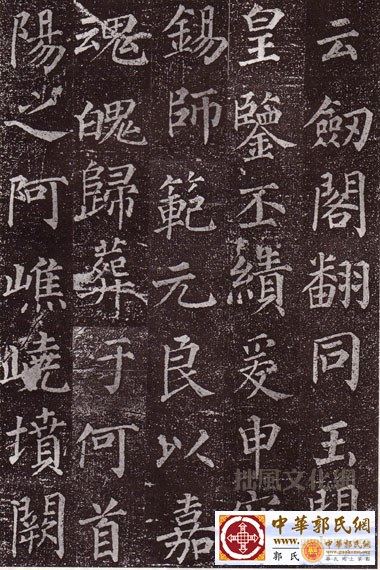 云劒閣翻同玉
皇鑒丕績爰申
錫師範元良以嘉
魂魄歸葬于何首
陽之阿嶕嶢墳闕
拙風文化網
中華郭氏網
郭氏